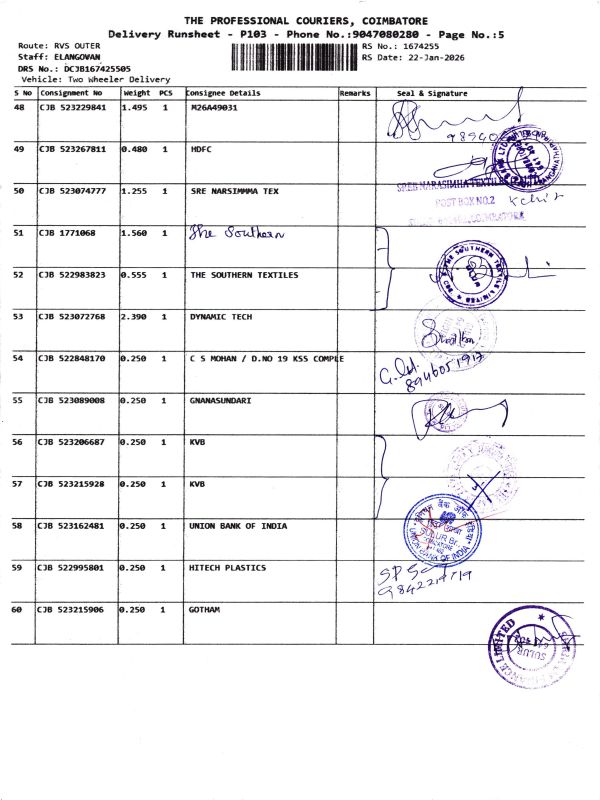 THE PROFESSIONAL COURIERS, COIMBATORE
Delivery Runsheet - P103 - Phone No.:9047080280 - Page No.:5
Route: RVS OUTER
Staff: ELANGOVAN
DRS No.: DCJB167425505
Vehicle: Two Wheeler Delivery
RS No.: 1674255
RS Date: 22-Jan-2026
S No Consignment No Weight PCS Consignee Details Remarks Seal & Signature
48 CJB 523229841 1.495 1 M26A49031
49 CJB 523267811 0.480 1 HDFC
50 CJB 523074777 1.255 1 SRE NARSIMMMA TEX
SREE NARASIMHA TEXTILES
POST BOX NO.2
51 CJB 1771068 1.560 1 The Southern
52 CJB 522983823 0.555 1 THE SOUTHERN TEXTILES
THE SOUTHERN TEXTILE LIMITED
53 CJB 523072768 2.390 1 DYNAMIC TECH
54 CJB 522848170 0.250 1 C S MOHAN / D.NO 19 KSS COMPLE
8946051917
55 CJB 523089008 0.250 1 GNANASUNDARI
56 CJB 523206687 0.250 1 KVB
57 CJB 523215928 0.250 1 KVB
58 CJB 523162481 0.250 1 UNION BANK OF INDIA
SULUR Br.
UNION BANK OF INDIA
59 CJB 522995801 0.250 1 HITECH PLASTICS
60 CJB 523215906 0.250 1 GOTHAM
SULUR
LIMITED